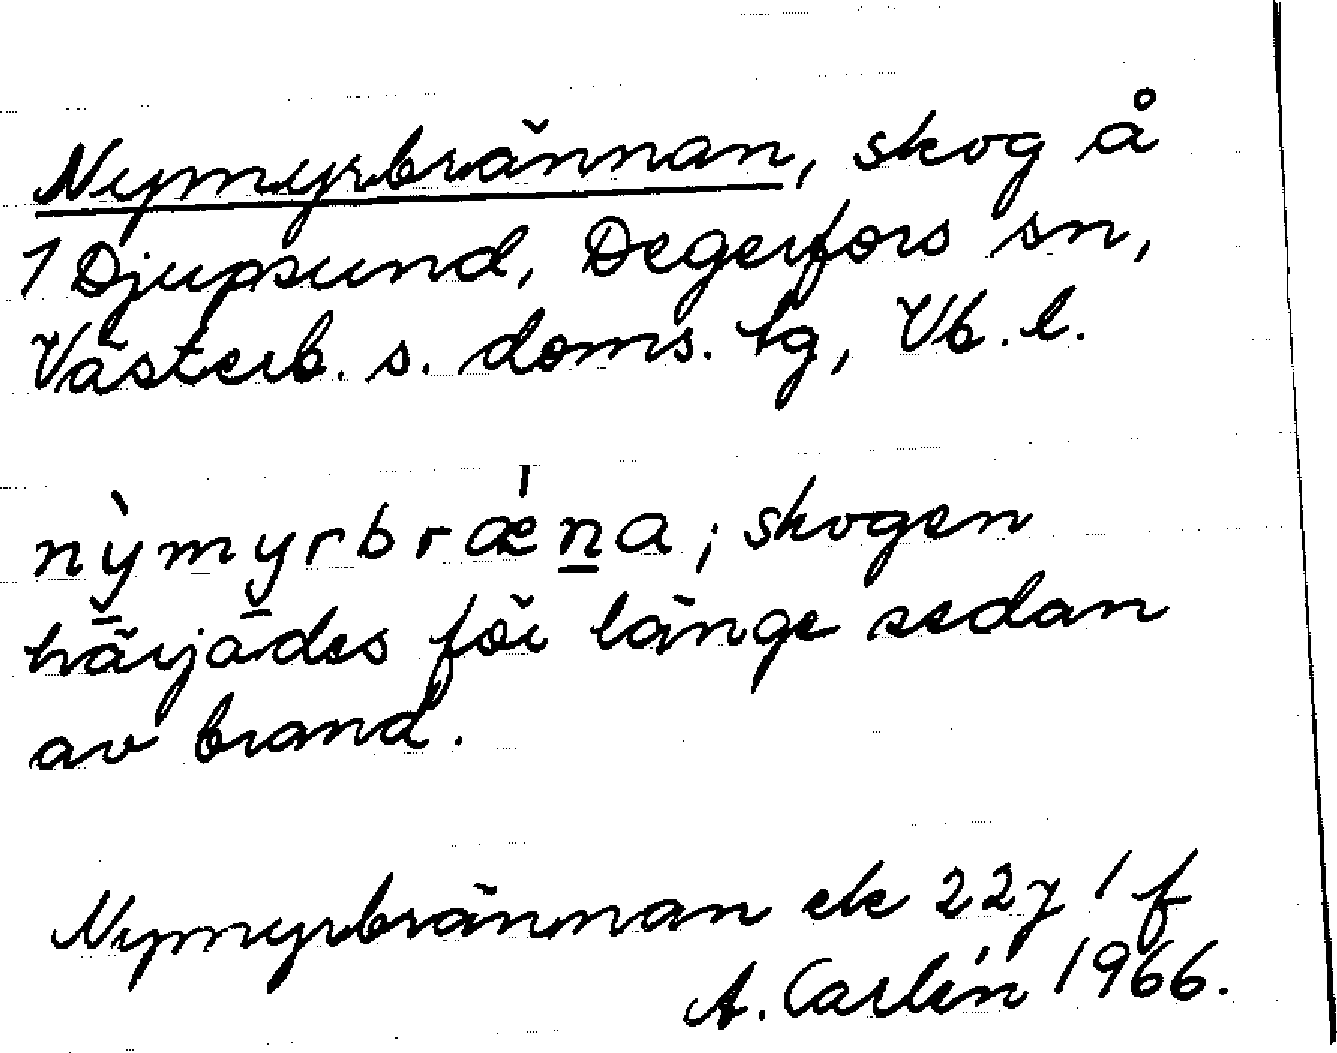 Nymyrbrännan, skog å
1 Djupsund, Degerfors sn,
Västerb. s. doms. tg, Vb. l.
nỳmyrbræ̍n̲a; skogen
härjades för länge sedan
av brand.
Nymyrbrännan ek 22 J 1 f
A. Carlén 1966.